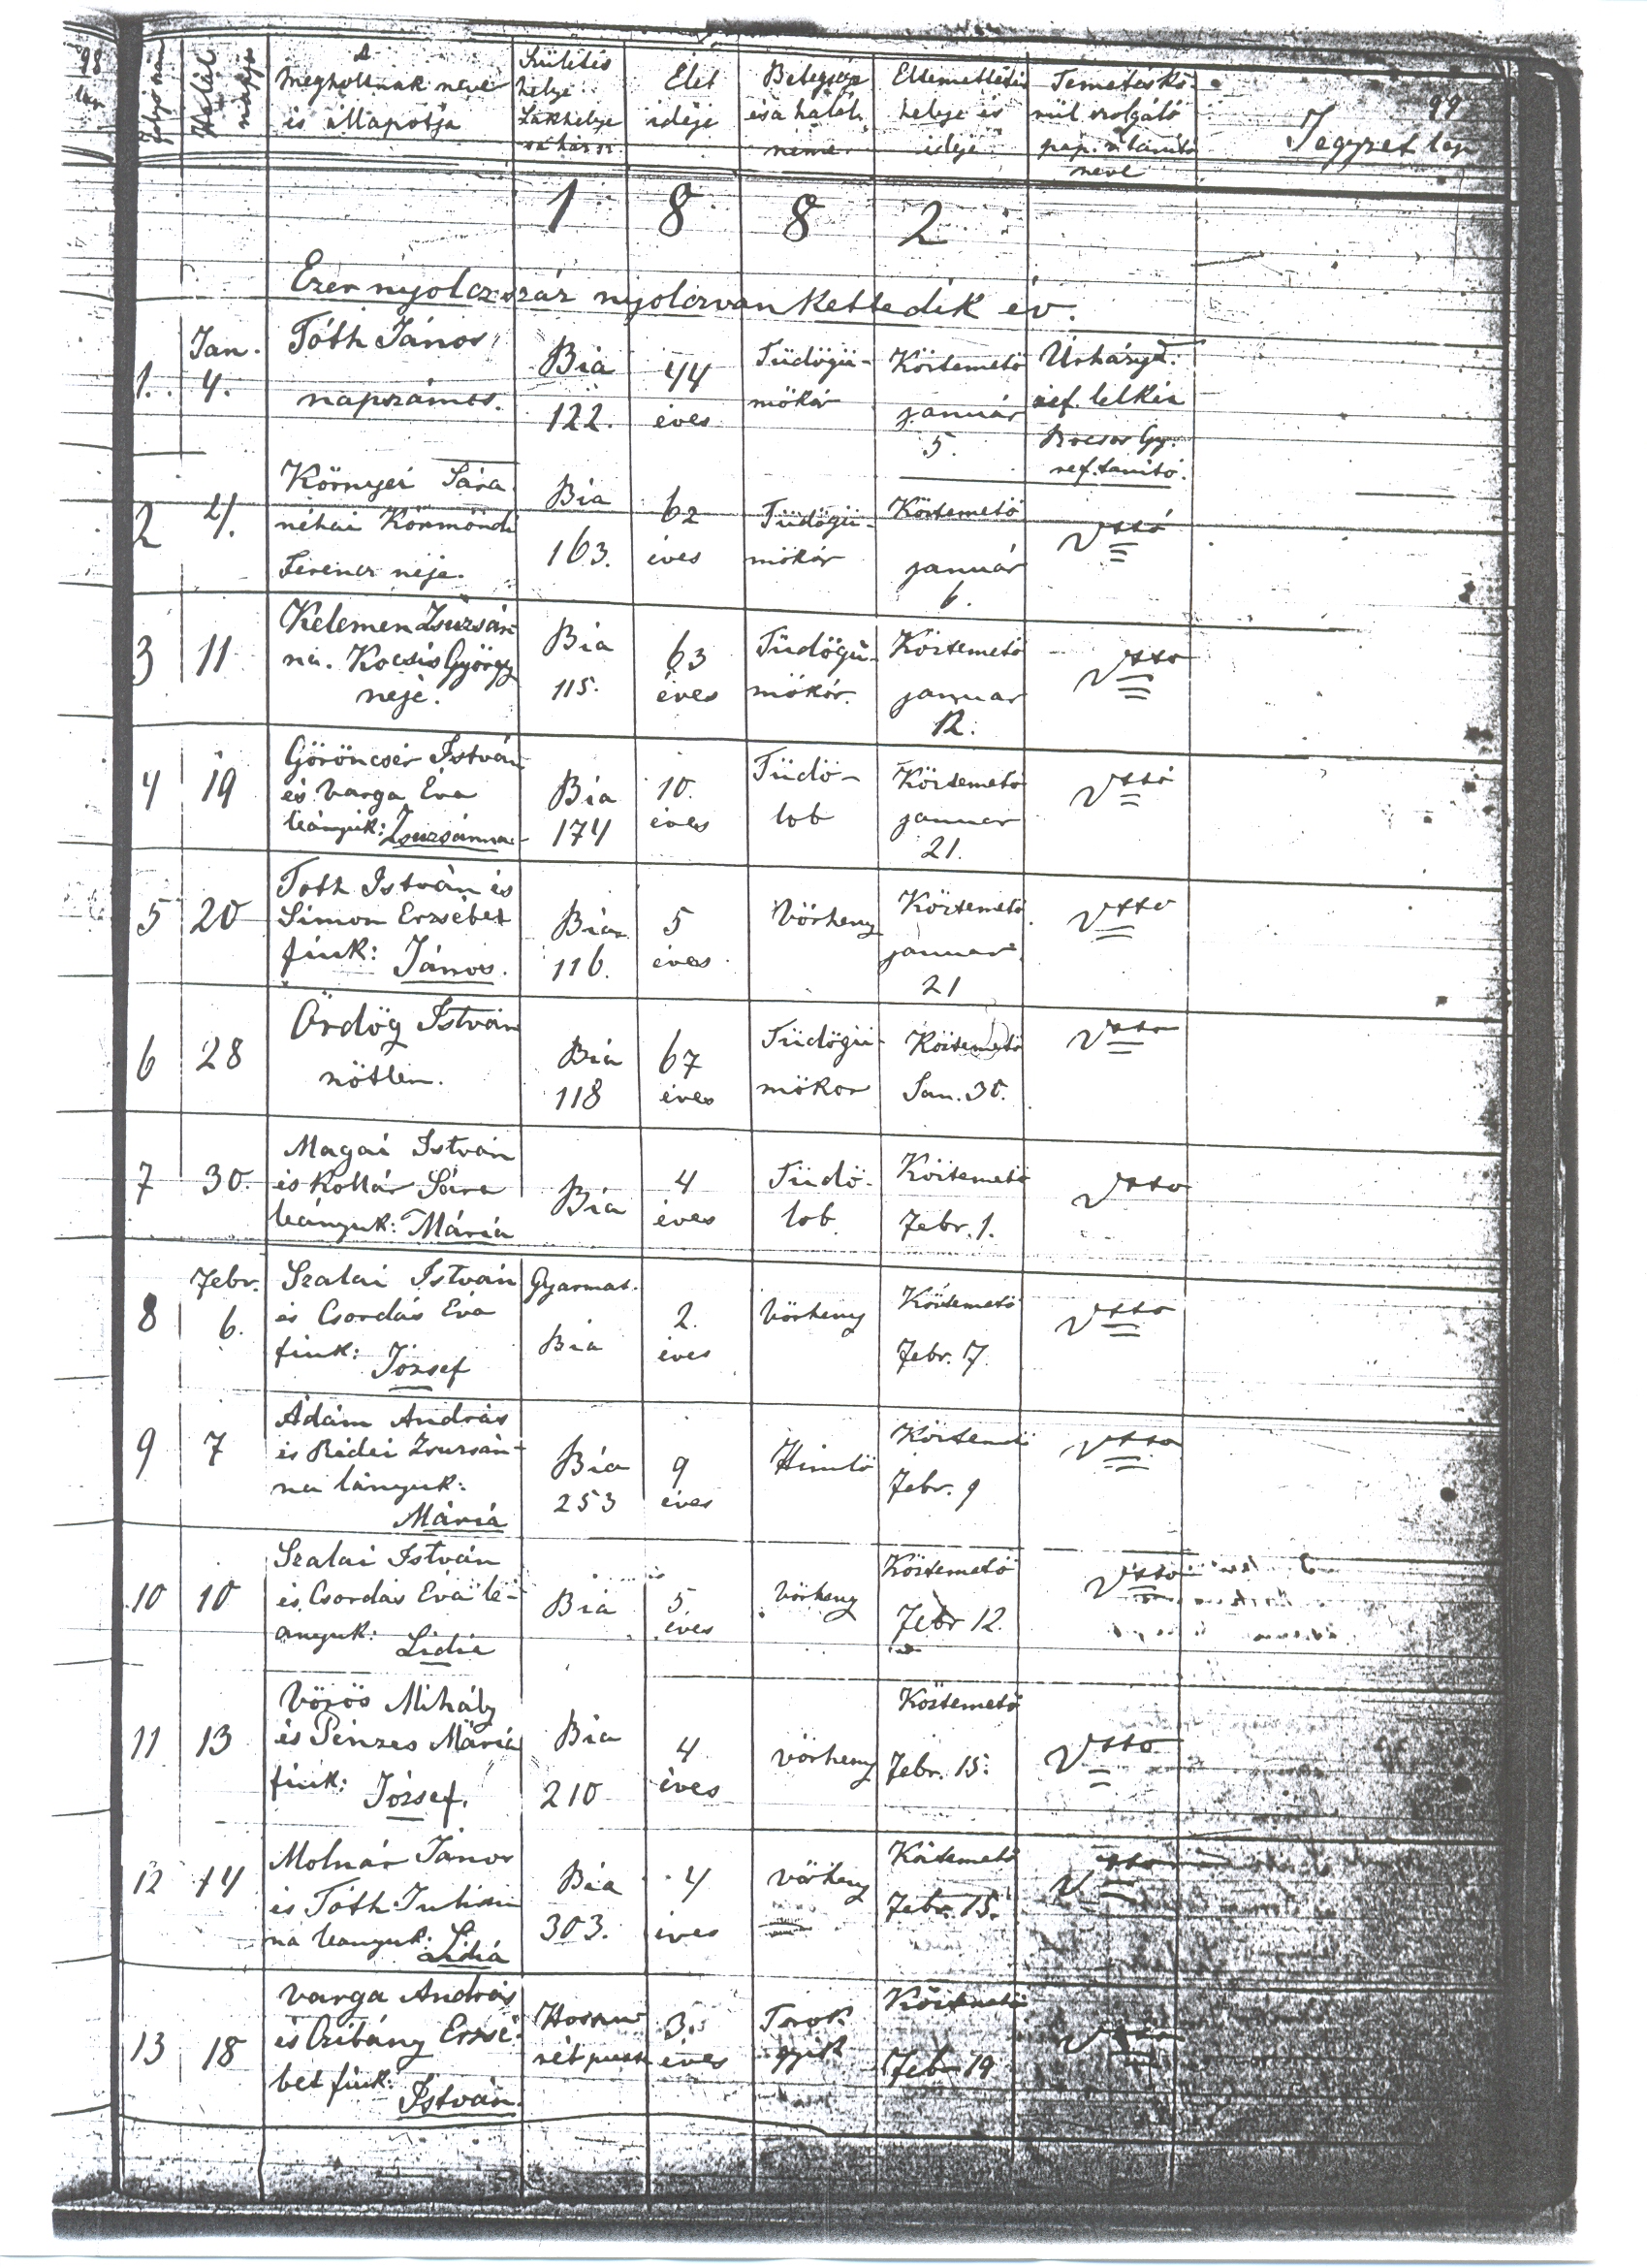 98
lap
Halál
napja
A
megholtnak neve
és állapotja
Születés
helye
Lakhelye
Élet
ideje
Betegsége
és a halál
neme
Eltemettetés
helye és
ideje
Temetés kö-
rül szolgáló
pap. s tanító
neve
99
Jegyzet lap
1 8 8 2
Ezer nyolczszáz nyolczvan Kettedik év.
1. Jan. 4. Tóth János,
napszámos.
Bia
122.
44
éves
Tüdőgü-
mőkór
Köztemető
január
5.
ref. lelkész
Kocsos Gy.
ref. tanító.
2 4. Környei Sára
néhai Körmöndi
Ferencz neje.
Bia
163.
62
éves
Tüdőgü-
mőkór
Köztemető
január
6.
3 11 Kelemen Zsuzsán
na. Kocsis György
neje.
Bia
115.
63
éves
Tüdőgü-
mőkór.
Köztemető
januar
12.
4 19 Göröncsér István
és Varga Éva
leányuk: Zsuzsánna
Bia
174
10.
éves
Tüdő-
lob
Köztemető
januar
21.
5 20 Toth István és
Simon Erzsébet
fiuk: János.
Bia
116.
5
éves
Vörheny
Köztemető
januar
21
6 28 Ördög István
nőtlen.
Bia
118
67
éves
Tüdőgü-
mőkor
Köztemető
Jan. 30.
7 30. Magai István
és Kollár Sára
leányuk: Mária
Bia
4
éves
Tüdő-
lob
Köztemető
Febr. 1.
8 Febr. 6. Szalai István
és Csordás Éva
fiuk: József
Gyarmat.
Bia
2.
éves
Vörheny
Köztemető
Febr. 7.
9 7 Ádám András
és Rédei Zsuzsán-
na lányuk:
Máriá
Bia
253
9
éves
Himlő
Köztemető
Febr. 9
10 10 Szalai István
és Csordás Éva le-
anyuk: Lidia
Bia
5
éves
Vörheny
Köztemető
Febr 12.
11 13 Vörös Mihály
és Pénzes Mária
fiuk: József.
Bia
210
4
éves
vörheny
Köztemető
Febr. 15.
12 14 Molnár János
és Tóth Julián
na leanyuk: Lidiá
Bia
303.
4
éves
vörheny
Köztemető
Febr. 15.
13 18 Varga András
és Czibány Erzsé-
bet fiuk: István.
3.
éves
Torok
gyik
Köztemető
Febr 19